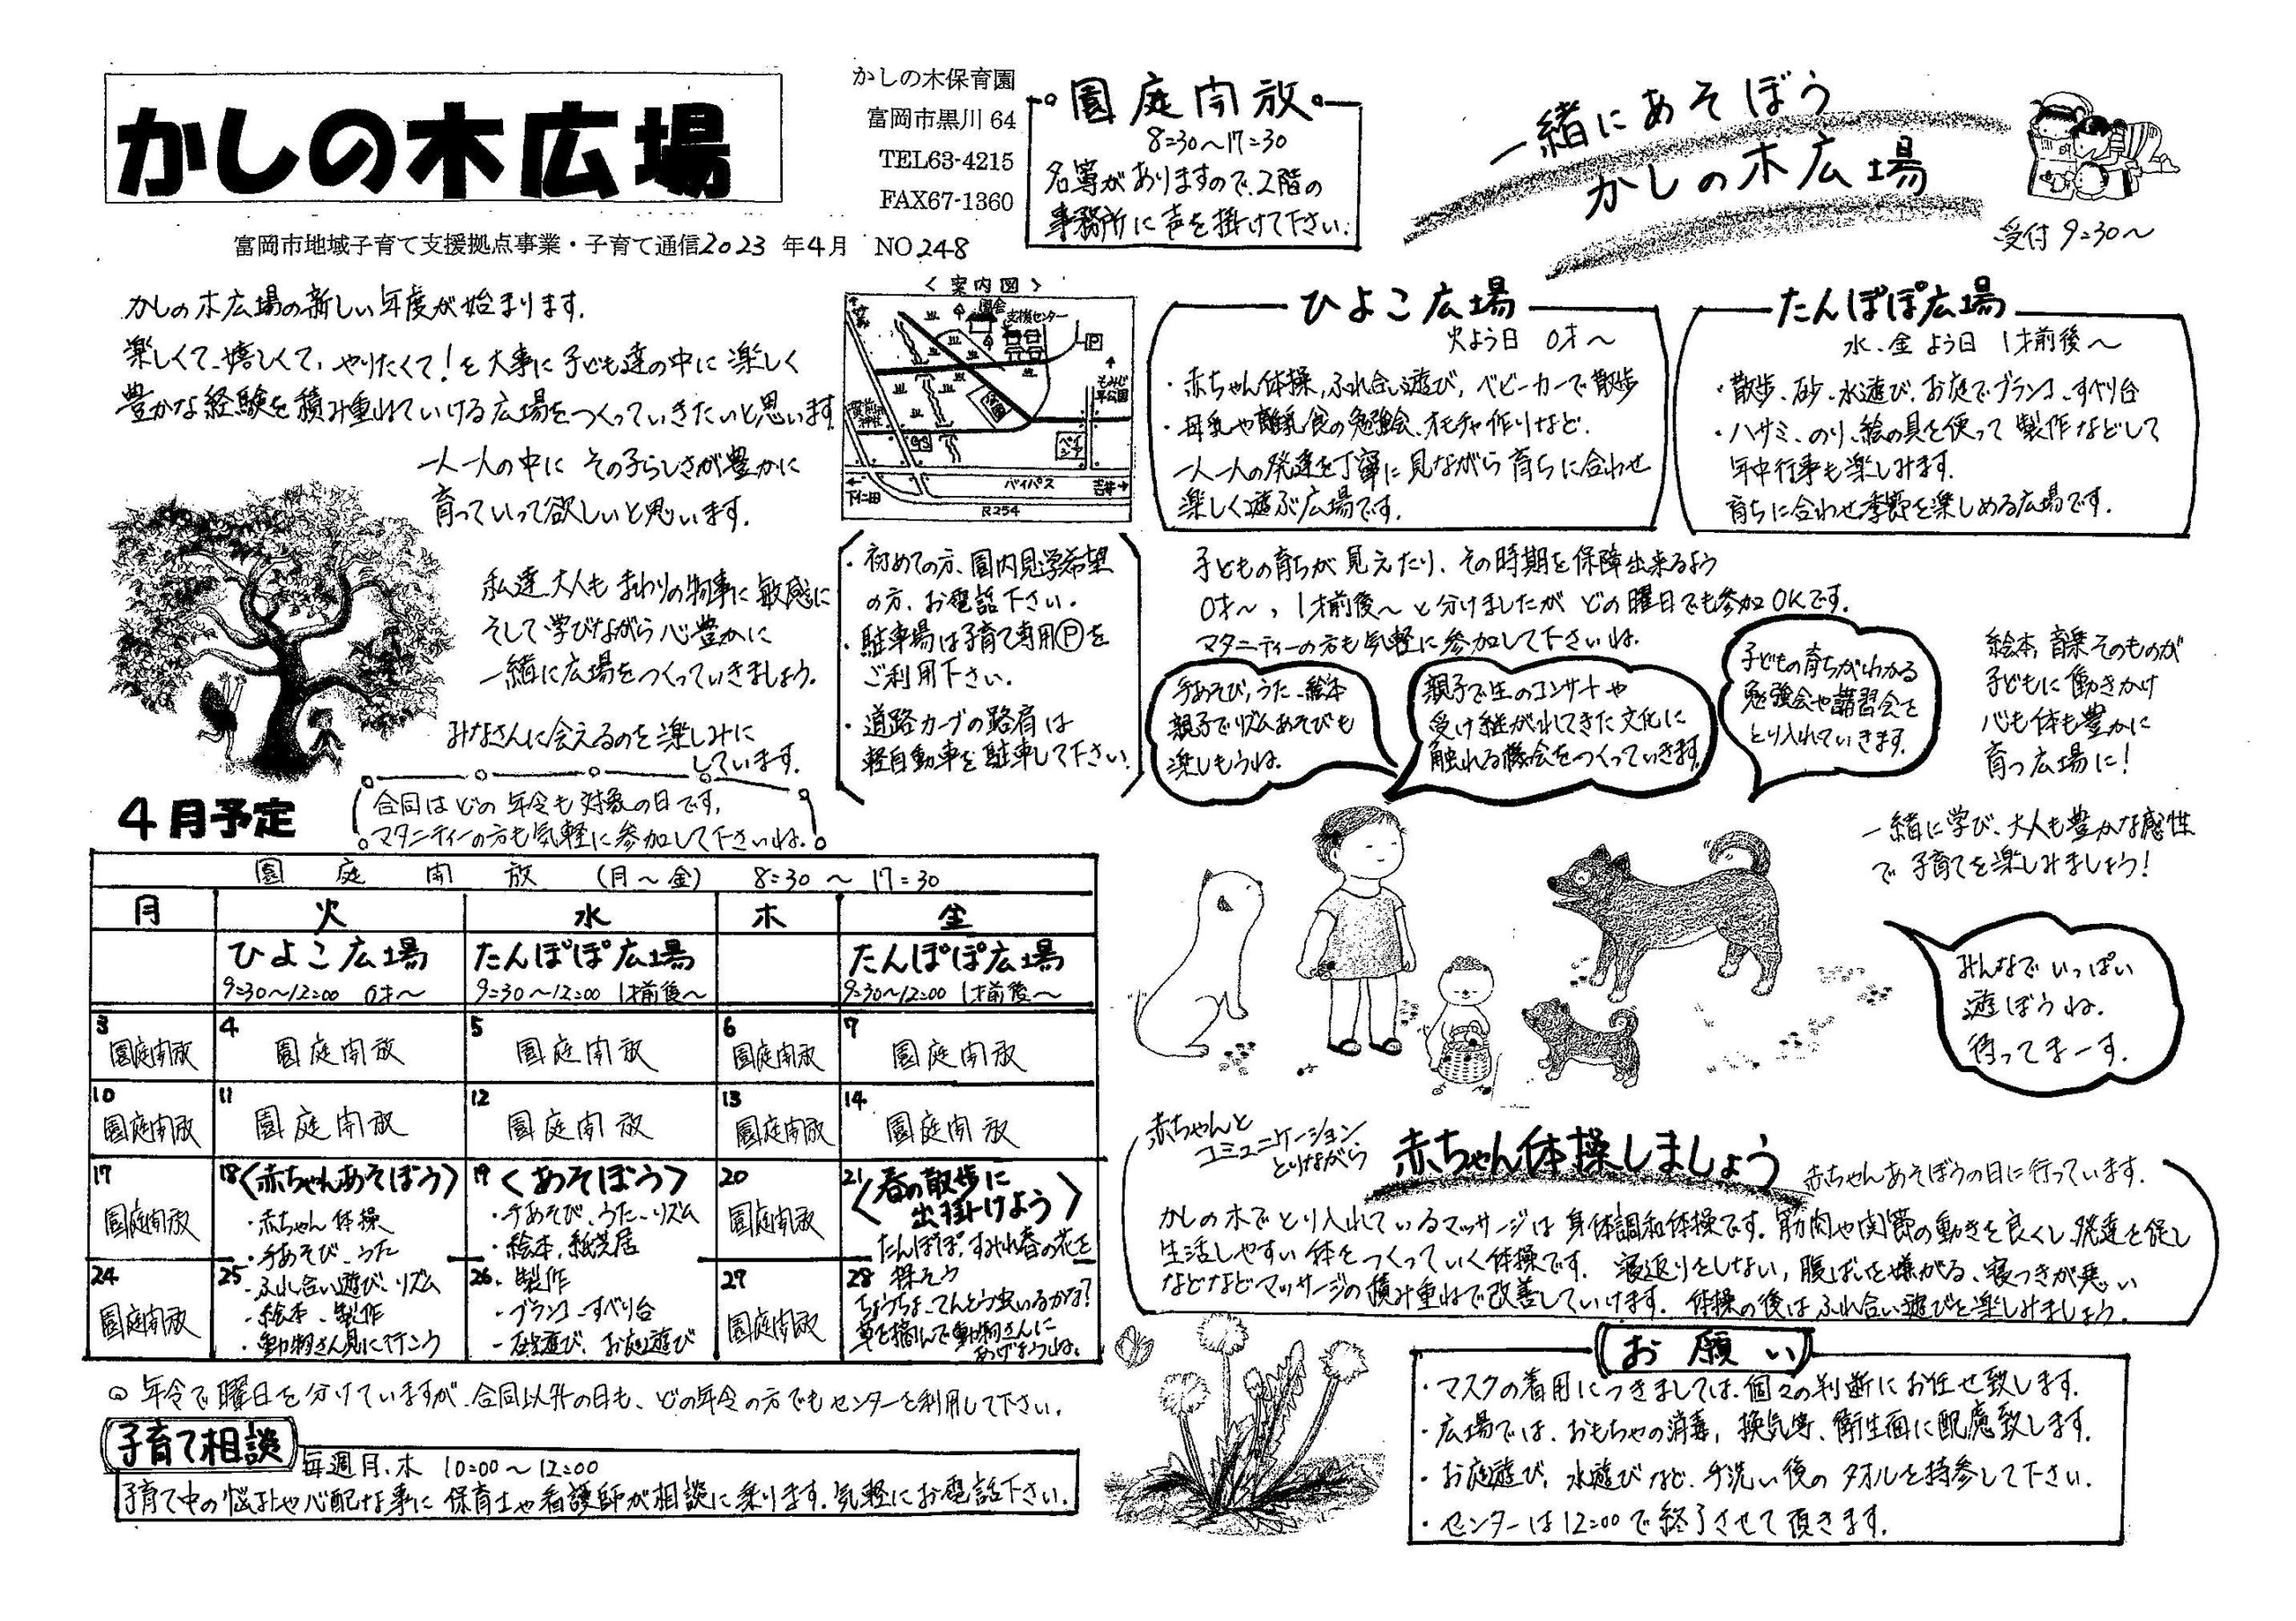 かしの木広場
かしの木保育園
富岡市黒川 64
TEL63-4215
FAX67-1360
富岡市地域子育て支援拠点事業・子育て通信2023 年4月 NO248
園庭開放
8:30～17:30
名簿がありますので、2階の
事務所に声を掛けて下さい。
一緒にあそぼう
かしの木広場
受付 9:30～
かしの木広場の新しい年度が始まります。
楽しくて、嬉しくて、やりたくて!を大事に子ども達の中に楽しく
豊かな経験を積み重ねていける広場をつくっていきたいと思います
一人一人の中に その子らしさが豊かに
育っていって欲しいと思います。
私達、大人も まわりの物事に敏感に
そして学びながら心豊かに
一緒に広場をつくっていきましょう。
みなさんに会えるのを楽しみに
しています。
〈案内図〉
園舎
支援センター
P
バイパス
下仁田
吉井
R254
・初めての方、園内見学希望
の方、お電話下さい。
・駐車場は子育て専用Ⓟを
ご利用下さい。
・道路カーブの路肩は
軽自動車を駐車して下さい。
ひよこ広場
火よう日 0才～
・赤ちゃん体操、ふれ合い遊び、ベビーカーで散歩
・母乳や離乳食の勉強会、オモチャ作りなど、
一人一人の発達を丁寧に見ながら育ちに合わせ
楽しく遊ぶ広場です。
たんぽぽ広場
水、金よう日 1才前後～
・散歩、砂、水遊び、お庭でブランコ、すべり台
・ハサミ、のり、絵の具を使って製作などして
年中行事も楽しみます。
育ちに合わせ季節を楽しめる広場です。
子どもの育ちが見えたり、その時期を保障出来るよう
0才～、1才前後～と分けましたが どの曜日でも参加OKです。
マタニティーの方も気軽に参加して下さいね。
手あそび、うた、絵本
親子でリズムあそびも
楽しもうね。
親子で生のコンサートや
受け継がれてきた文化に
触れる機会をつくっていきます。
子どもの育ちがわかる
勉強会や講習会を
とり入れていきます。
絵本、音楽そのものが
子どもに働きかけ
心も体も豊かに
育つ広場に!
一緒に学び、大人も豊かな感性
で子育てを楽しみましょう!
みんなでいっぱい
遊ぼうね。
待ってまーす。
4月予定
合同はどの年令も対象の日です。
マタニティーの方も気軽に参加して下さいね。
園庭開放 (月～金) 8:30～17:30
月 火 水 木 金
ひよこ広場 たんぽぽ広場 たんぽぽ広場
9:30～12:00 0才～ 9:30～12:00 1才前後～ 9:30～12:00 1才前後～
3 4 5 6 7
園庭開放 園庭開放 園庭開放 園庭開放 園庭開放
10 11 12 13 14
園庭開放 園庭開放 園庭開放 園庭開放 園庭開放
17
園庭開放
18〈赤ちゃんあそぼう〉
・赤ちゃん体操
・手あそび、うた
25・ふれ合い遊び、リズム
・絵本、製作
・動物さん見に行こう
19〈あそぼう〉
・手あそび、うた、リズム
・絵本、紙芝居
26・製作
・ブランコ、すべり台
・砂遊び、お庭遊び
20
園庭開放
21〈春の散歩に
出掛けよう〉
たんぽぽ、すみれ春の花を
28 探そう
ちょうちょ、てんとう虫いるかな?
草を摘んで動物さんに
あげようね。
24
園庭開放
27
園庭開放
○年令で曜日を分けていますが、合同以外の日も、どの年令の方でもセンターを利用して下さい。
子育て相談
毎週月、木 10:00～12:00
子育て中の悩みや心配な事に保育士や看護師が相談に乗ります。気軽にお電話下さい。
赤ちゃんと
コミュニケーション
とりながら
赤ちゃん体操しましょう
赤ちゃんあそぼうの日に行っています。
かしの木でとり入れているマッサージは身体調和体操です。筋肉や関節の動きを良くし発達を促し
生活しやすい体をつくっていく体操です。寝返りをしない、腹ばいを嫌がる、寝つきが悪い
などなどマッサージの積み重ねで改善していけます。体操の後はふれ合い遊びを楽しみましょう。
お願い
・マスクの着用につきましては、個々の判断にお任せ致します。
・広場では、おもちゃの消毒、換気等、衛生面に配慮致します。
・お庭遊び、水遊びなど、手洗い後のタオルを持参して下さい。
・センターは12:00で終了させて頂きます。